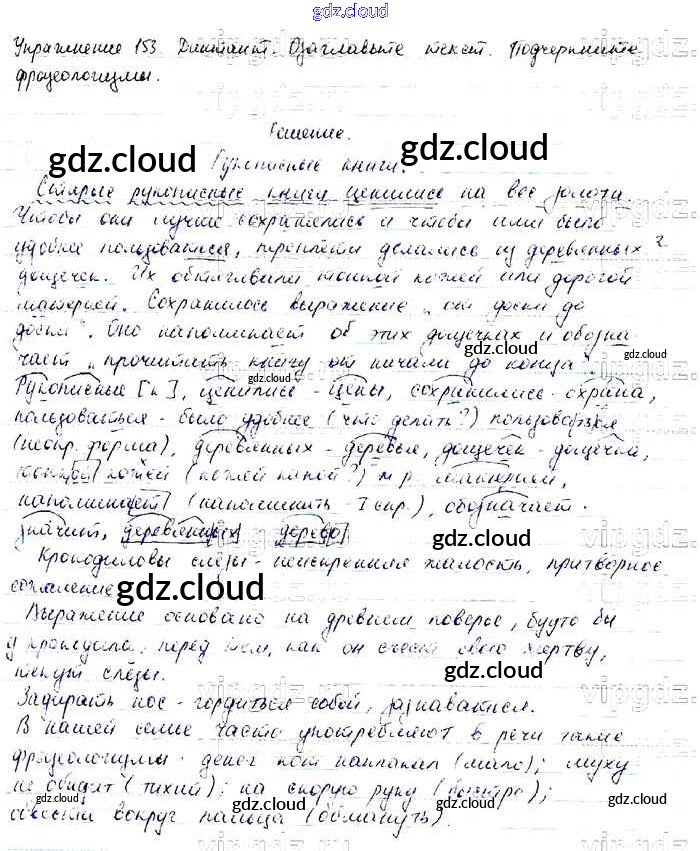 gdz.cloud
Упражнение 153. Диктант. Озаглавьте текст. Подчеркните
фразеологизмы.
Решение.
gdz.cloud gdz.cloud
Рукописные книги.
Старые рукописные книги ценились на вес золота.
Чтобы они лучше сохранились и чтобы ими было
удобнее пользоваться, переплёты делались из деревянных
дощечек. Их обтягивали тонкой кожей или дорогой
материей. Сохранилось выражение „от доски до
доски". Оно напоминает об этих дощечках и обозна-
чает „прочитать книгу от начала до конца".
gdz.cloud
gdz.cloud
Рукописные [к], ценились - цены, сохранились - охрана,
пользоваться - было удобнее (что делать?) пользоваться
(неопр. форма), деревянных - деревья, дощечек - дощечка,
кожей (кожей какой?) материей,
напоминает (напоминать - I спр.), обозначает -
значит, деревянных дерево
vipgdz
Крокодиловы слёзы - неискренняя жалость, притворное
сожаление
gdz.cloud gdz.cloud
Выражение основано на древнем поверье, будто бы
у крокодила, перед тем, как он съест свою жертву,
текут слёзы.
gdz.cloud
Задирать нос - гордиться собой, зазнаваться.
В нашей семье часто употребляют в речи такие
фразеологизмы: денег кот наплакал (мало); муху
не обидит (тихий); на скорую руку (быстро);
обвести вокруг пальца (обмануть).
gdz.cloud gdz.cloud gdz.cloud gdz.cloud gdz.cloud